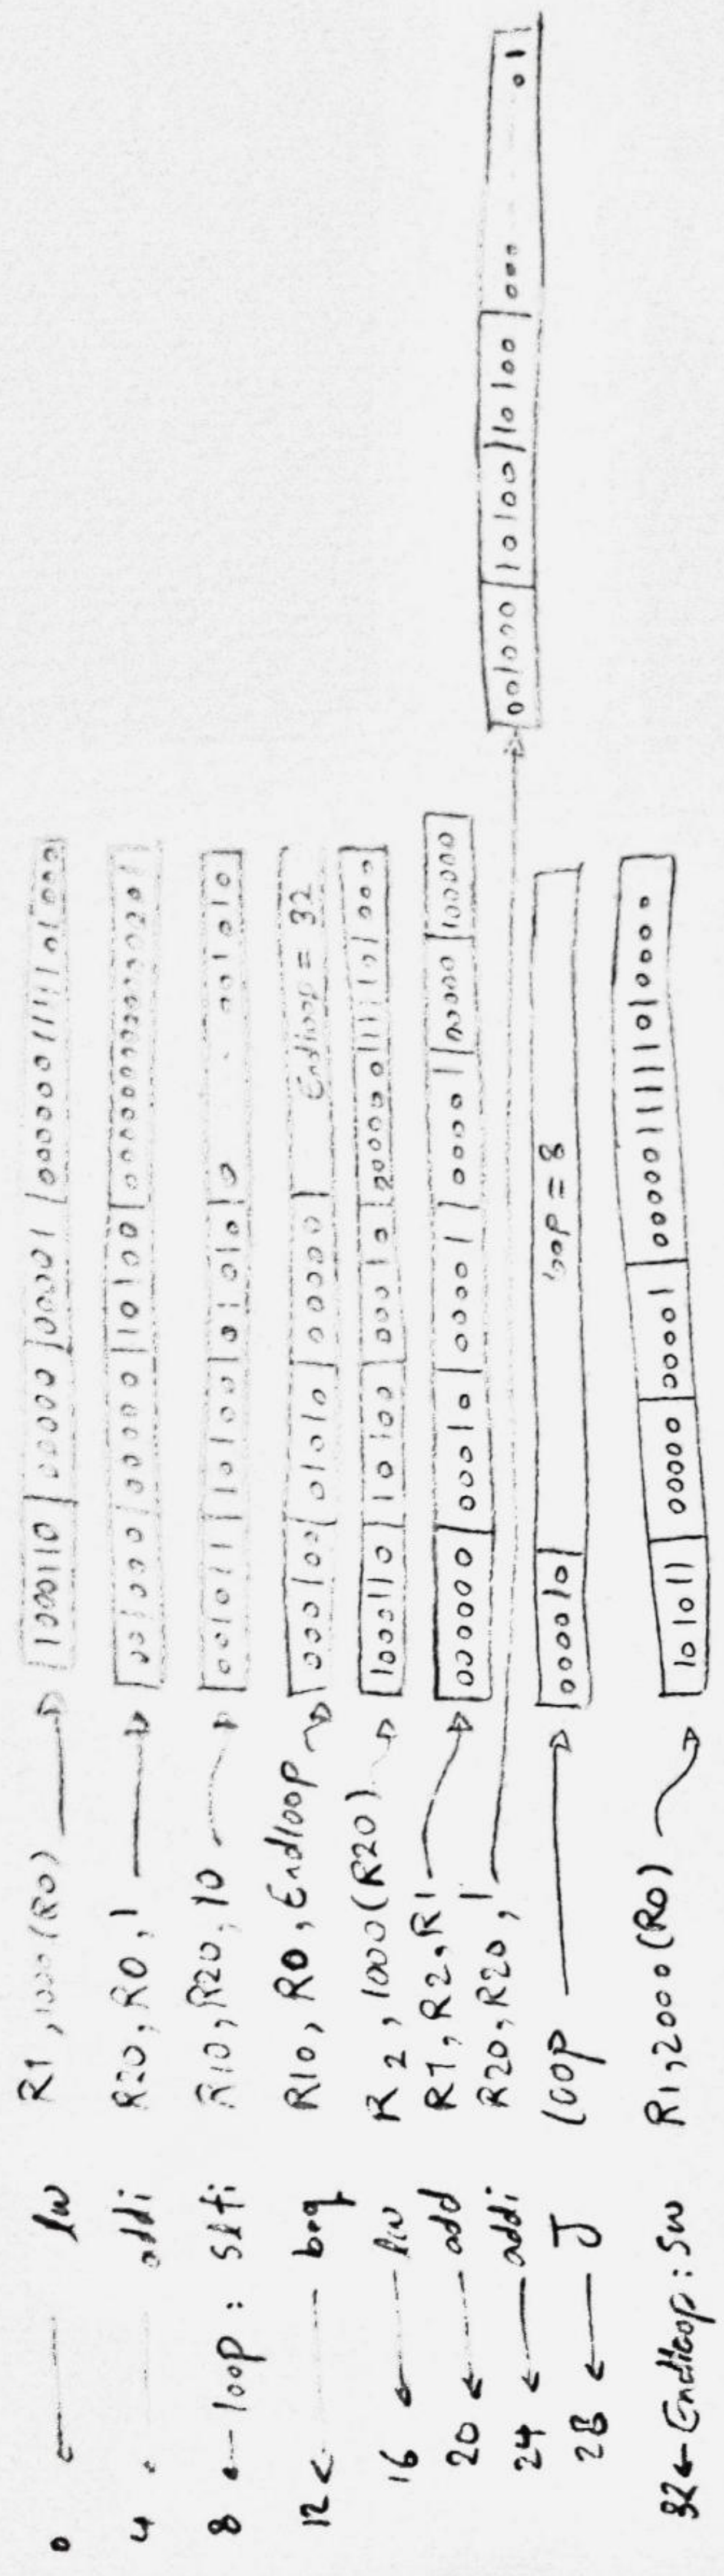 0 ← lw R1, 1000(R0) → 1000110 | 00000 | 00001 | 0000001111101000
4 ← addi R20, R0, 1 → 001000 | 00000 | 10100 |
8 ← loop: slti R10, R20, 10 → 001011 | 10100 | 01010 | 0 . 001010
12 ← beq R10, R0, Endloop → 000100 | 01010 | 00000 | Endloop = 32
16 ← lw R2, 1000(R20) → 1000110 | 10100 | 00010 | 0000001111101000
20 ← add R1, R2, R1 → 000000 | 00010 | 00001 | 00001 | 00000 | 100000
24 ← addi R20, R20, 1 → 001000 | 10100 | 10100 | 000 ... 01
28 ← J loop → 000010 | loop = 8
32 ← Endloop: sw R1, 2000(R0) → 101011 | 00000 | 00001 | 0000011111010000